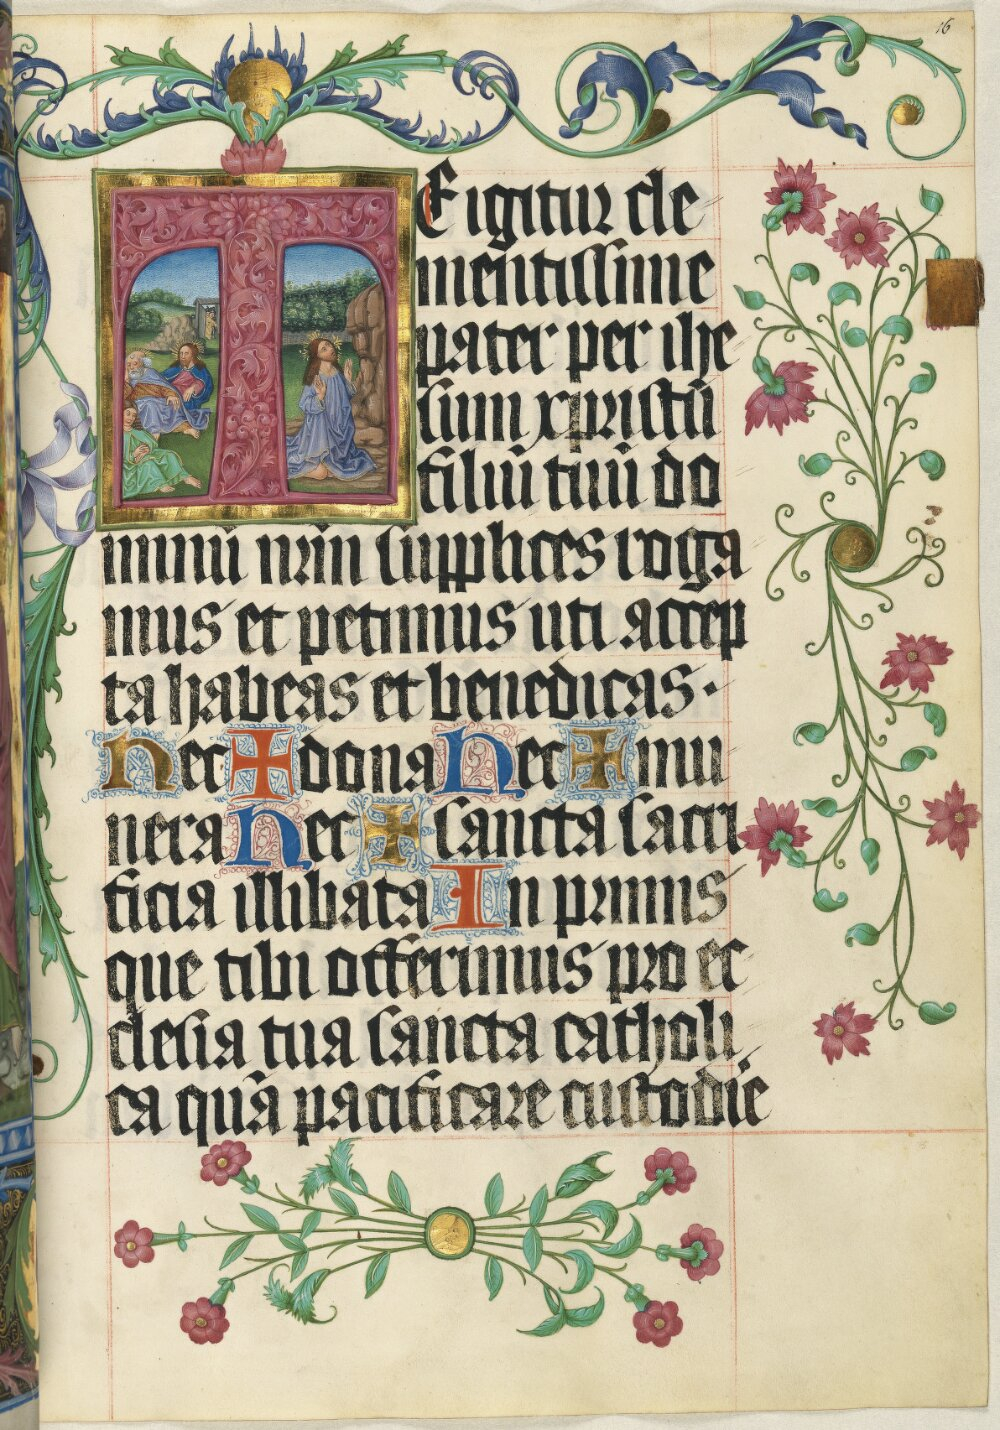 16
TE igitur cle
mentissime
pater per ihe
sum xpristū
filiū tuū do
minū nr̄m supplices roga
mus et petimus uti accep
ta habeas et benedicas·
Hec + dona Hec + mu
nera Hec + sancta sacri
ficia illibata In primis
que tibi offerimus pro ec
clesia tua sancta catholi
ca quā pacificare custodire